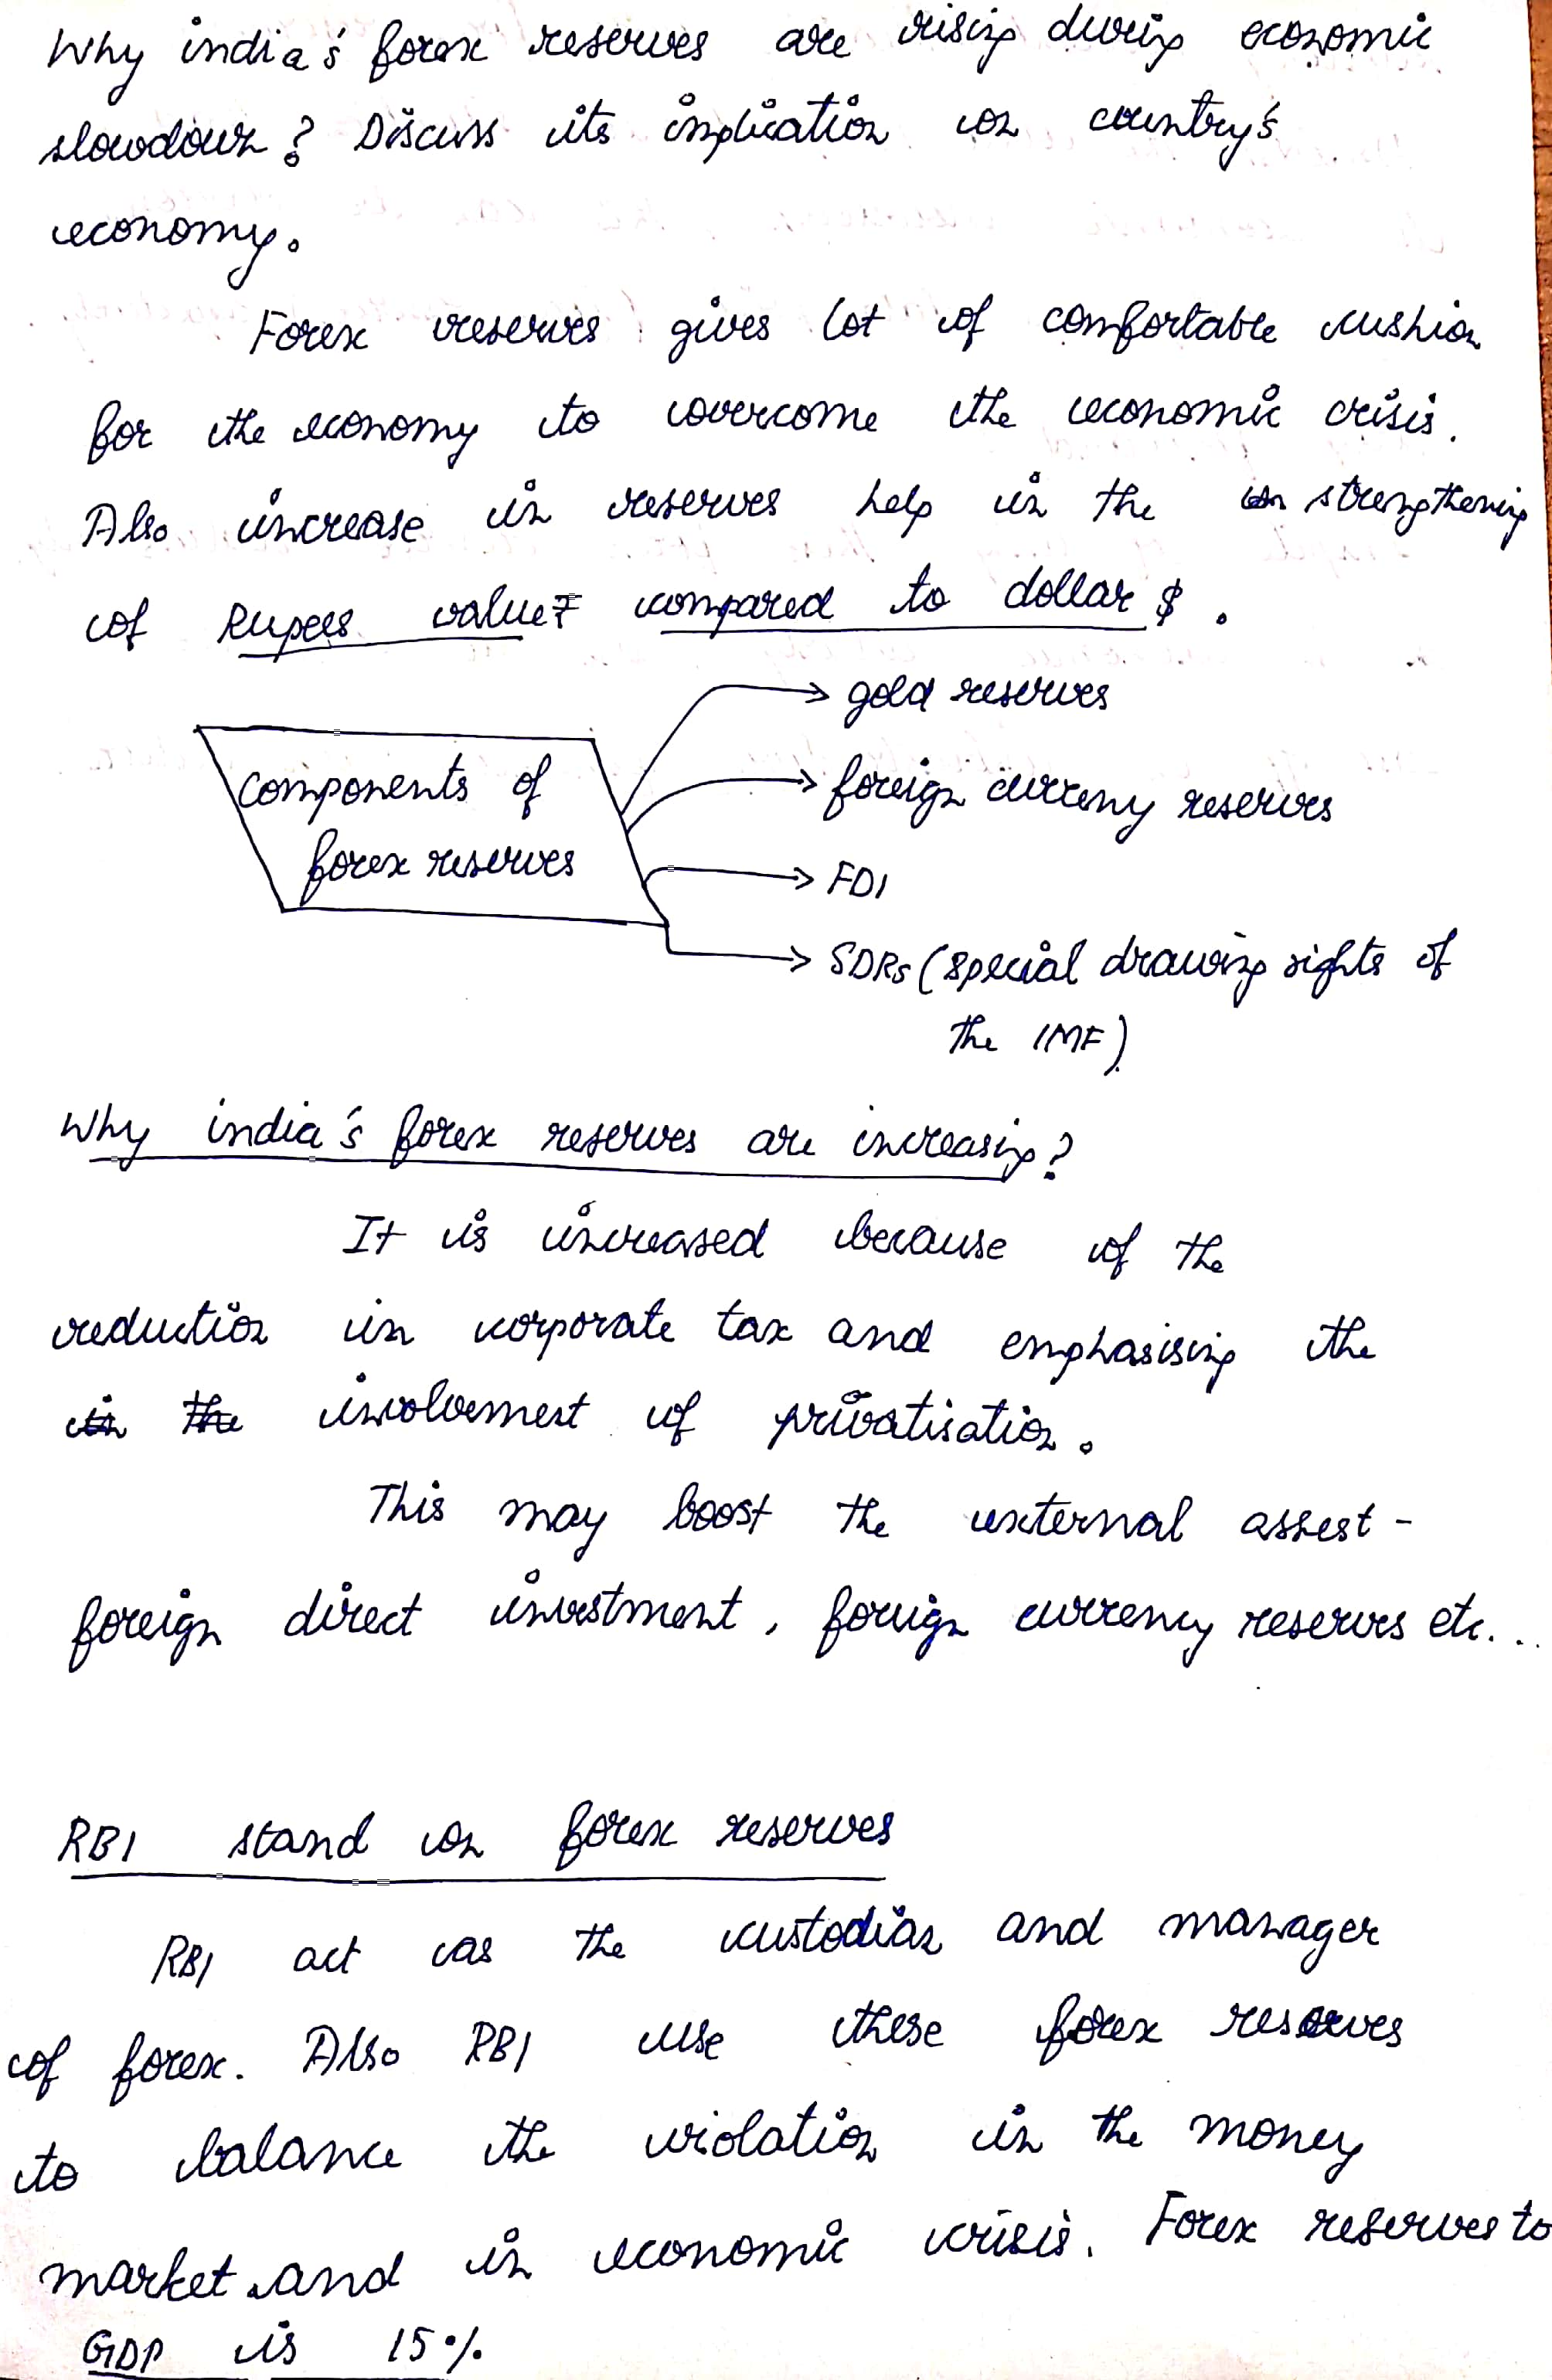 Why india's forex reserves are rising during economic
slowdown? Discuss its implication on country's
economy.
Forex reserves gives lot of comfortable cushion
for the economy to overcome the economic crisis.
Also increase in reserves help in the strengthening
of Rupees value₹ compared to dollar $.
components of
forex reserves
gold reserves
foreign curreny reserves
FDI
SDRs (special drawing rights of
the IMF)
Why india's forex reserves are increasing?
It is increased because of the
reduction in corporate tax and emphasising the
in the involvement of privatisation.
This may boost the external assest -
foreign direct investment, foreign currency reserves etc...
RBI stand on forex reserves
RBI act as the custodian and manager
of forex. Also RBI use these forex reserves
to balance the violation in the money
market and in economic crisis. Forex reserves to
GDP is 15%